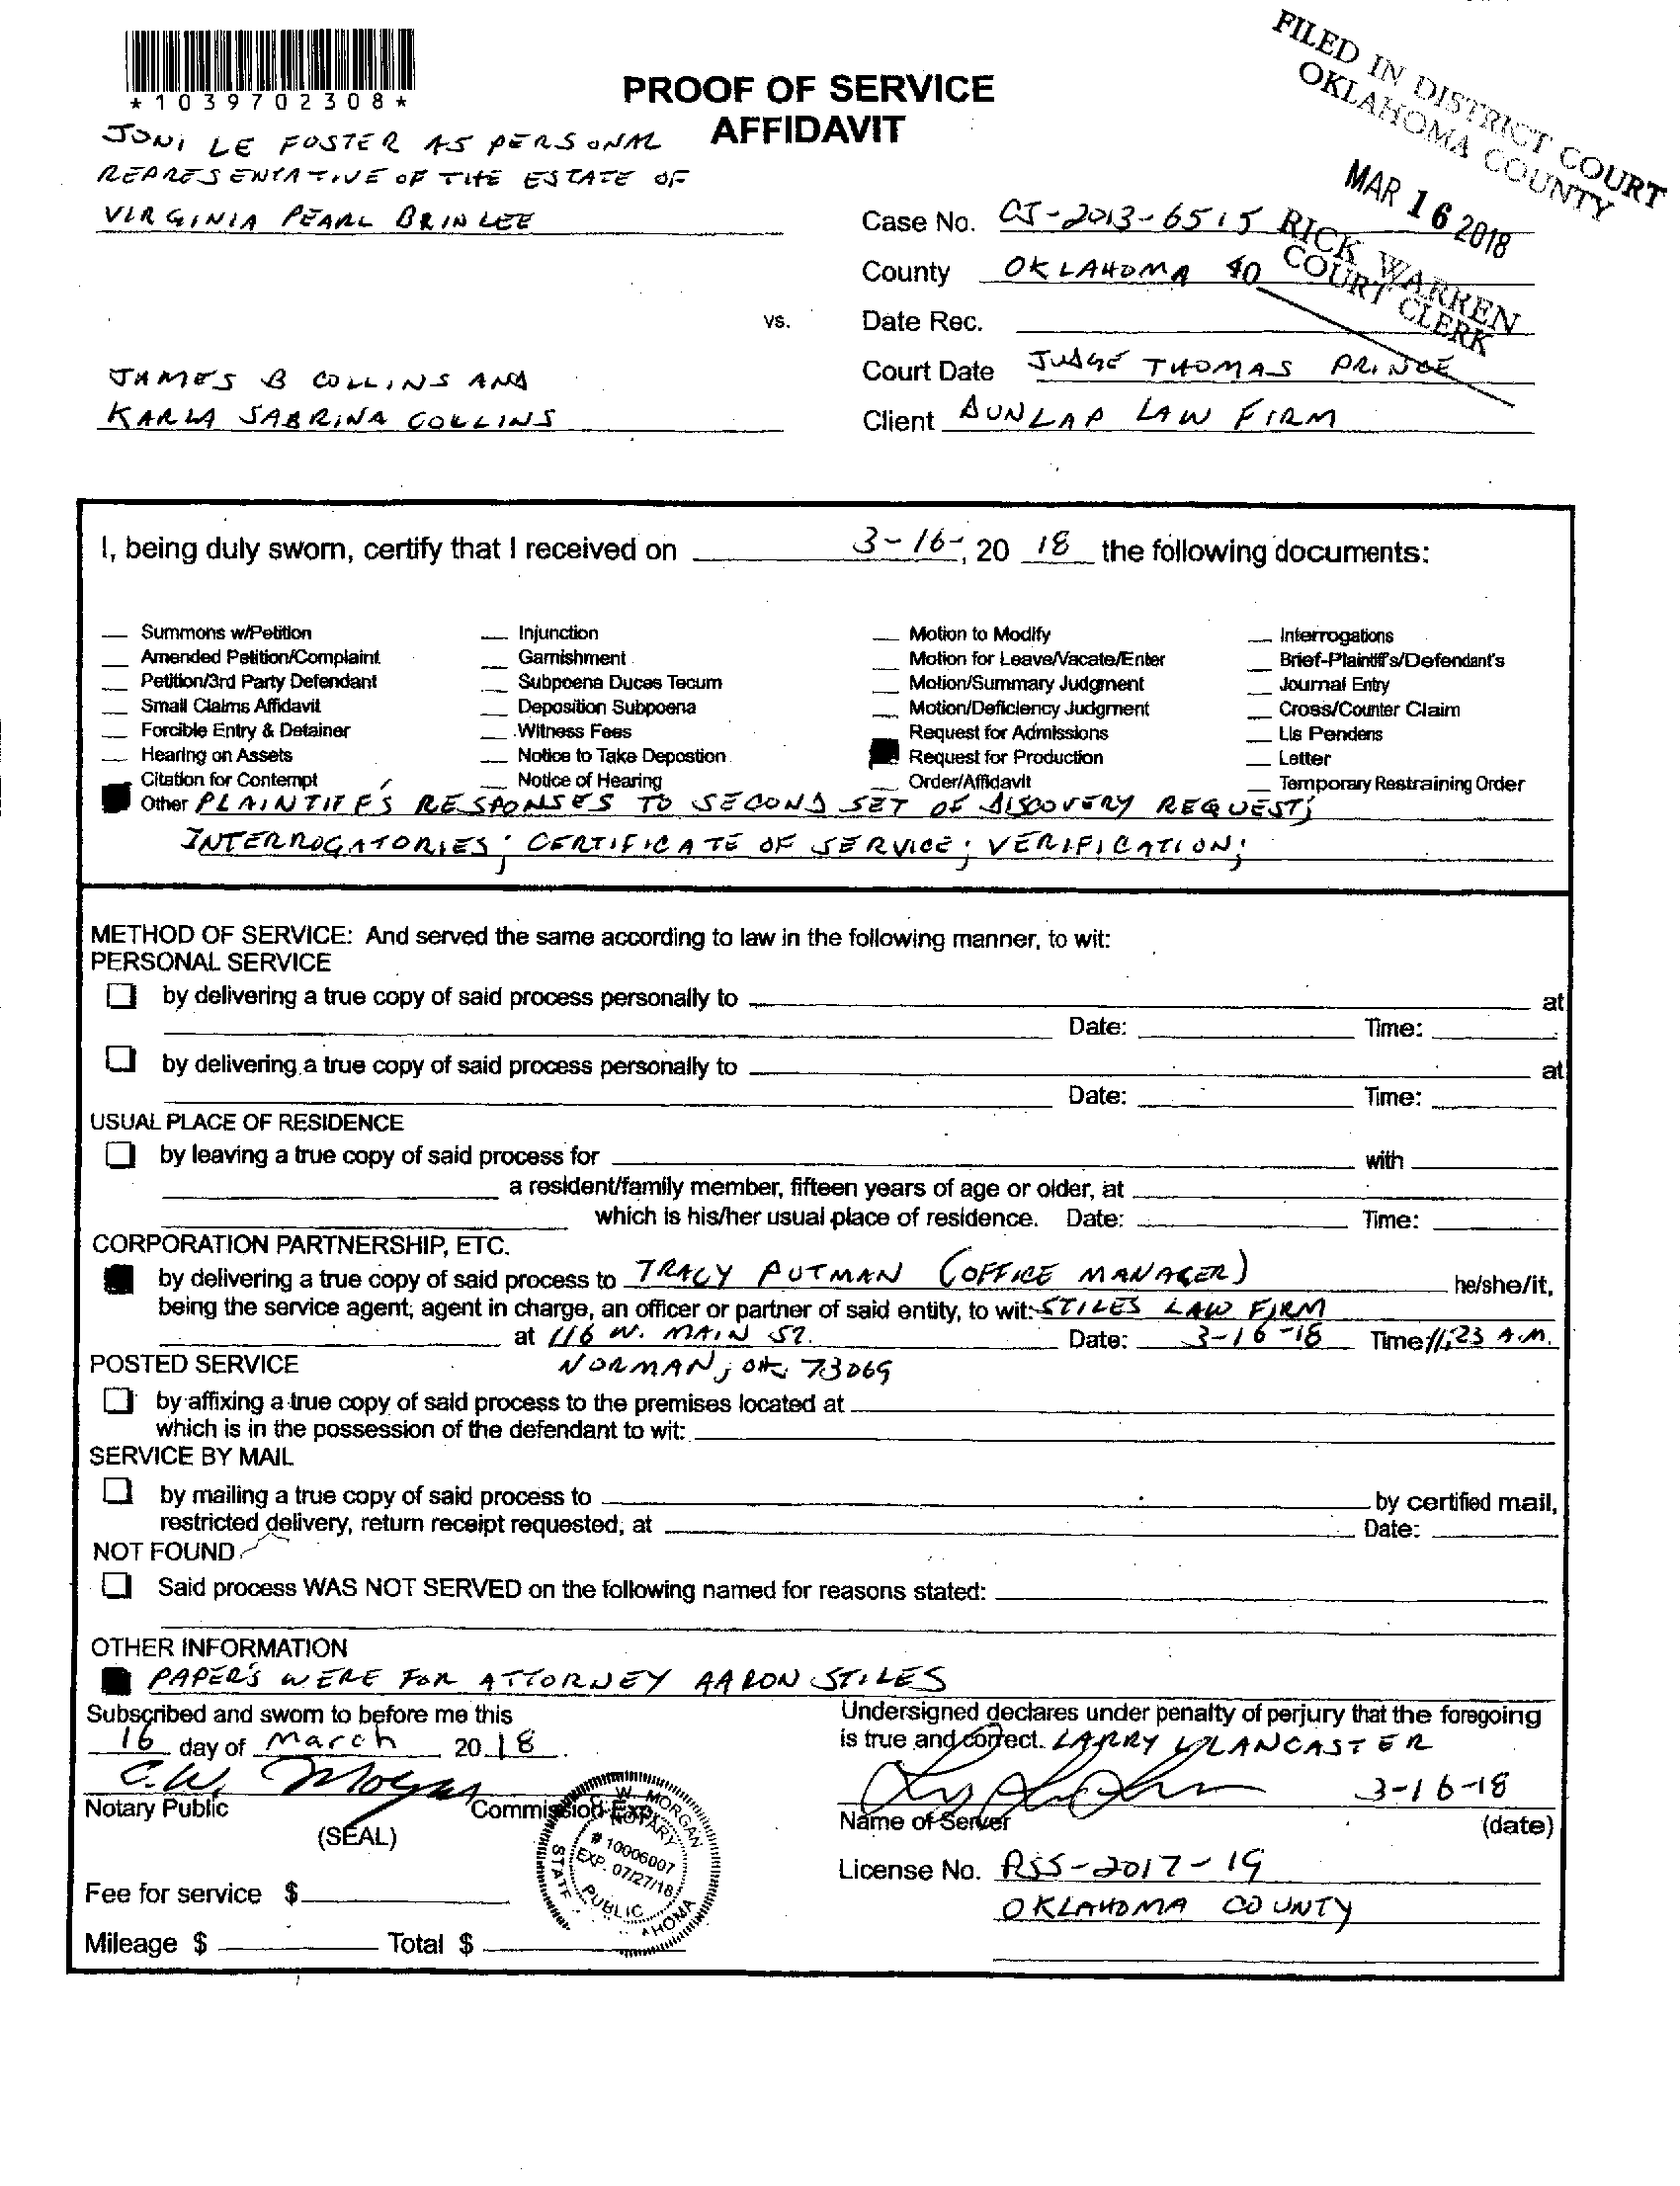 *1039702308*
PROOF OF SERVICE
AFFIDAVIT
FILED IN DISTRICT COURT
OKLAHOMA COUNTY
MAR 16 2018
RICK WARREN
COURT CLERK
40
JONI LE FOSTER AS PERSONAL
REPRESENTATIVE OF THE ESTATE OF
VIRGINIA PEARL BRINLEE
vs.
JAMES B COLLINS AND
KARLA SABRINA COLLINS
Case No. CJ-2013-6515
County OKLAHOMA
Date Rec.
Court Date JUDGE THOMAS PRINCE
Client DUNLAP LAW FIRM
I, being duly sworn, certify that I received on 3-16-, 20 18 the following documents:
Summons w/Petition
Amended Petition/Complaint
Petition/3rd Party Defendant
Small Claims Affidavit
Forcible Entry & Detainer
Hearing on Assets
Citation for Contempt
Injunction
Garnishment
Subpoena Duces Tecum
Deposition Subpoena
Witness Fees
Notice to Take Depostion
Notice of Hearing
Motion to Modify
Motion for Leave/Vacate/Enter
Motion/Summary Judgment
Motion/Deficiency Judgment
Request for Admissions
Request for Production
Order/Affidavit
Interrogations
Brief-Plaintiff's/Defendant's
Journal Entry
Cross/Counter Claim
Lis Pendens
Letter
Temporary Restraining Order
Other PLAINTIFFS RESPONSES TO SECOND SET OF DISCOVERY REQUEST;
INTERROGATORIES; CERTIFICATE OF SERVICE; VERIFICATION;
METHOD OF SERVICE: And served the same according to law in the following manner, to wit:
PERSONAL SERVICE
by delivering a true copy of said process personally to at
Date: Time:
by delivering a true copy of said process personally to at
Date: Time:
USUAL PLACE OF RESIDENCE
by leaving a true copy of said process for with
a resident/family member, fifteen years of age or older, at
which is his/her usual place of residence. Date: Time:
CORPORATION PARTNERSHIP, ETC.
by delivering a true copy of said process to TRACY PUTMAN (OFFICE MANAGER) he/she/it,
being the service agent, agent in charge, an officer or partner of said entity, to wit: STILES LAW FIRM
at 116 W. MAIN ST. Date: 3-16-18 Time: 11:23 A.M.
NORMAN, OK 73069
POSTED SERVICE
by affixing a true copy of said process to the premises located at
which is in the possession of the defendant to wit:
SERVICE BY MAIL
by mailing a true copy of said process to by certified mail,
restricted delivery, return receipt requested, at Date:
NOT FOUND
Said process WAS NOT SERVED on the following named for reasons stated:
OTHER INFORMATION
PAPER'S WERE FOR ATTORNEY AARON STILES
Subscribed and sworn to before me this
16 day of March 2018.
C.W. Morgan
Notary Public Commission Exp.
(SEAL)
W. MORGAN
NOTARY
# 10006007
EXP. 07/27/18
PUBLIC
STATE
Fee for service $
Mileage $ Total $
Undersigned declares under penalty of perjury that the foregoing
is true and correct. LARRY LANCASTER
3-16-18
Name of Server (date)
License No. PSS-2017-19
OKLAHOMA COUNTY